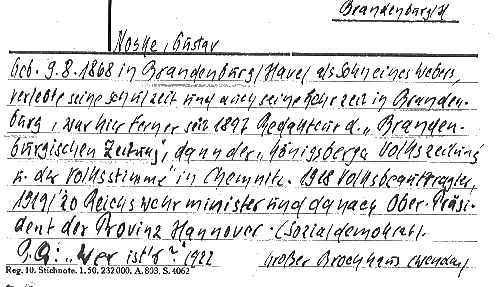 Brandenburg/H
Noske, Gustav
Geb. 9.8.1868 in Brandenburg/Havel als Sohn eines Webers,
verlebte seine Schulzeit und auch seine Lehrzeit in Branden-
burg, war hier ferner seit 1897 Redakteur d. „Branden-
burgischen Zeitung", dann der „Königsberger Volkszeitung"
u. der „Volksstimme" in Chemnitz. 1918 Volksbeauftragter,
1919/20 Reichswehrminister und danach Ober-Präsi-
dent der Provinz Hannover. (Sozialdemokrat).
"Wer ist's?" 1922 Großer Brockhaus
Reg. 10. Stichnote. 1. 50. 232 000. A. 803. S. 4062